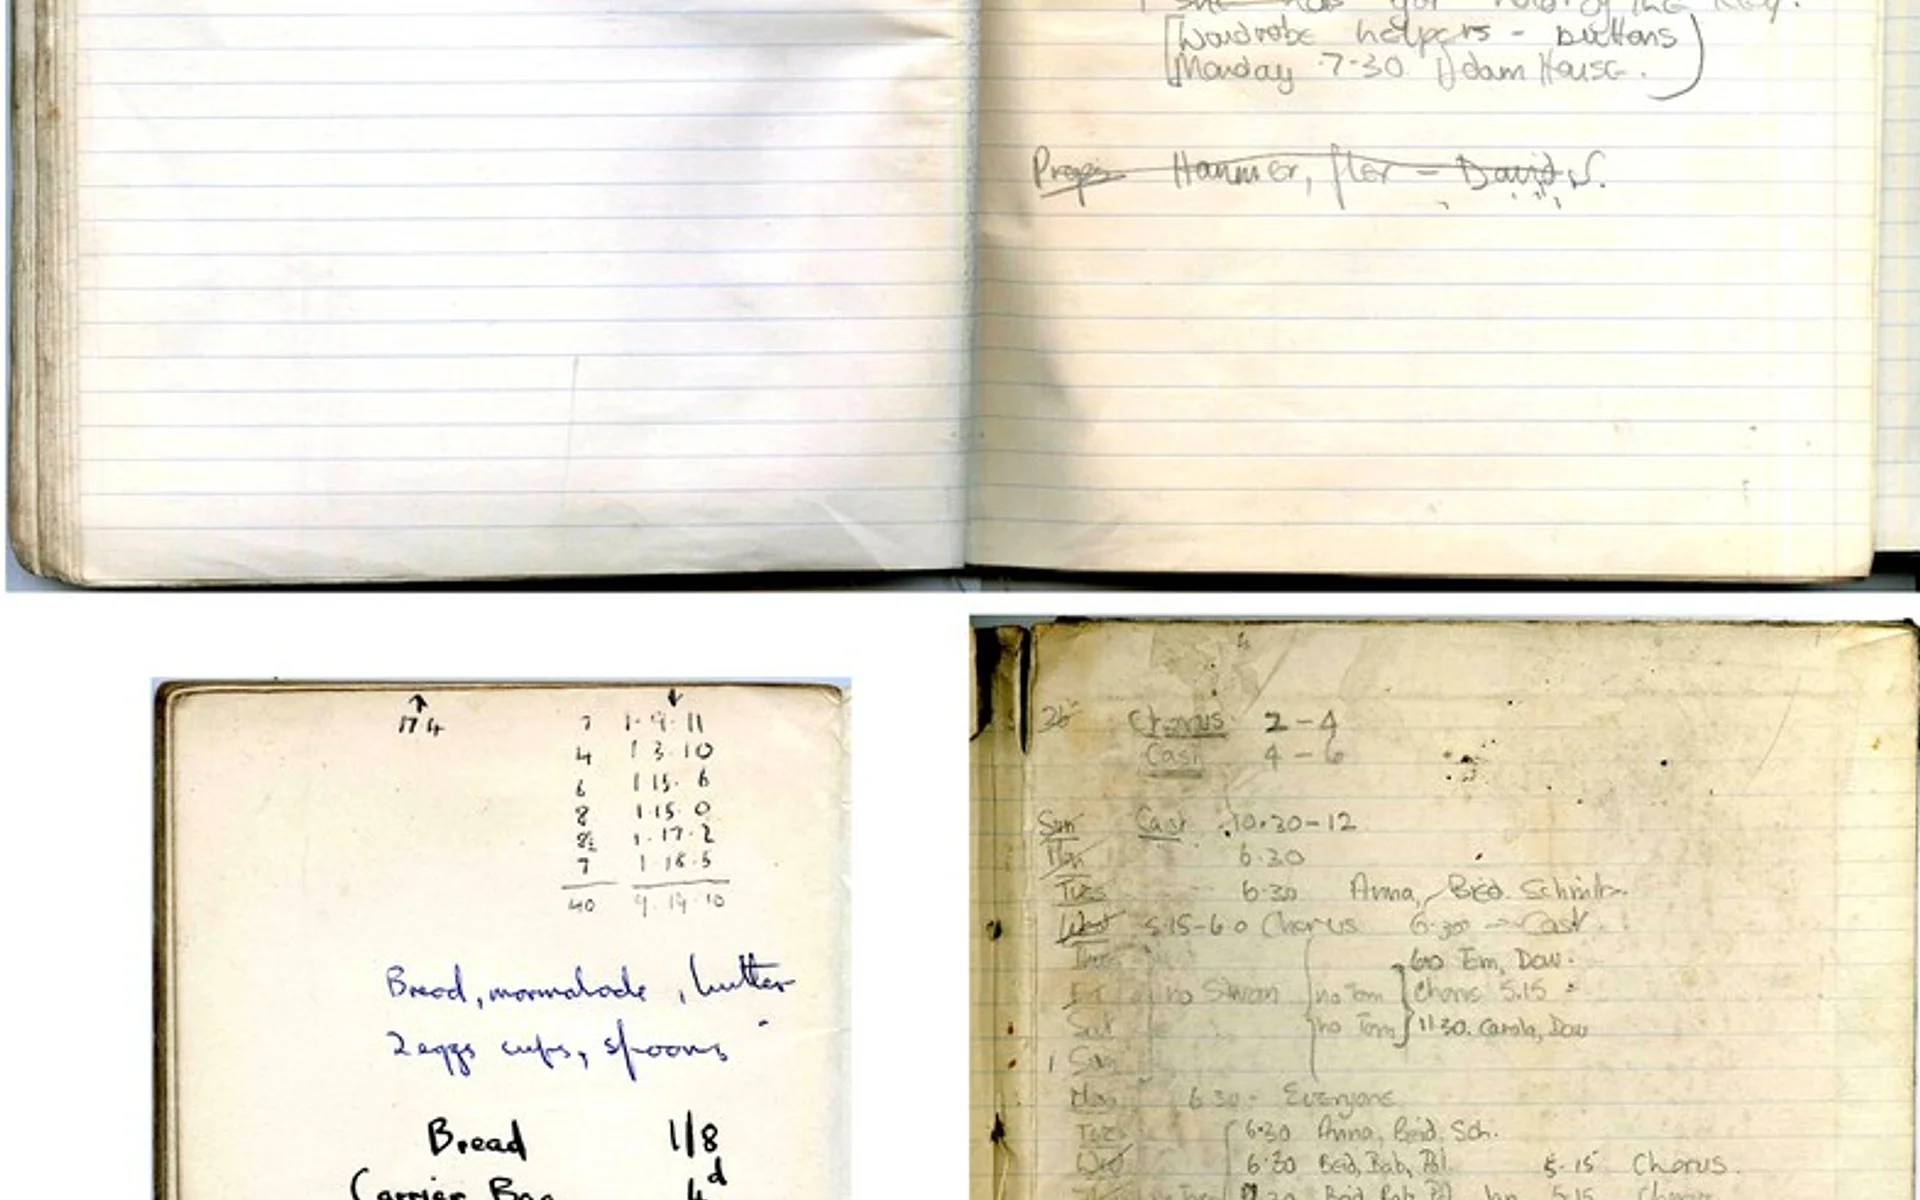 she has got hold of the key.
[Wardrobe helpers - buttons
Monday 7-30 Adam House.)
Props Hammer, fler - David S.
↑ 17 4
↓
7 1-9-11
4 1 3-10
6 1 15-6
8 1-15-0
8½ 1-17-2
7 1-18-5
40 9.19.10
Bread, marmalade, butter
2 eggs cups, spoons
Bread 1/8
Carrier Bag 4d
26 Chorus 2-4
Cast 4-6
Sun Cast 10.30-12
Mon 6.30
Tues 6.30 Anna, Beid.
Wed 5.15-6 0 Chorus 6.30 → Cast.
Thur 6.0 Tom, Dow.
Fri no Siwan no Tom Chorus 5.15
Sat no Tom 11 30. Carola, Dow
1 Sun
Mon 6 30- Everyone
Tues 6.30 Anna, Beid, Sch.
Wed 6.30 Beid, Bab, Pol. 5.15 Chorus.
5.15 Chorus